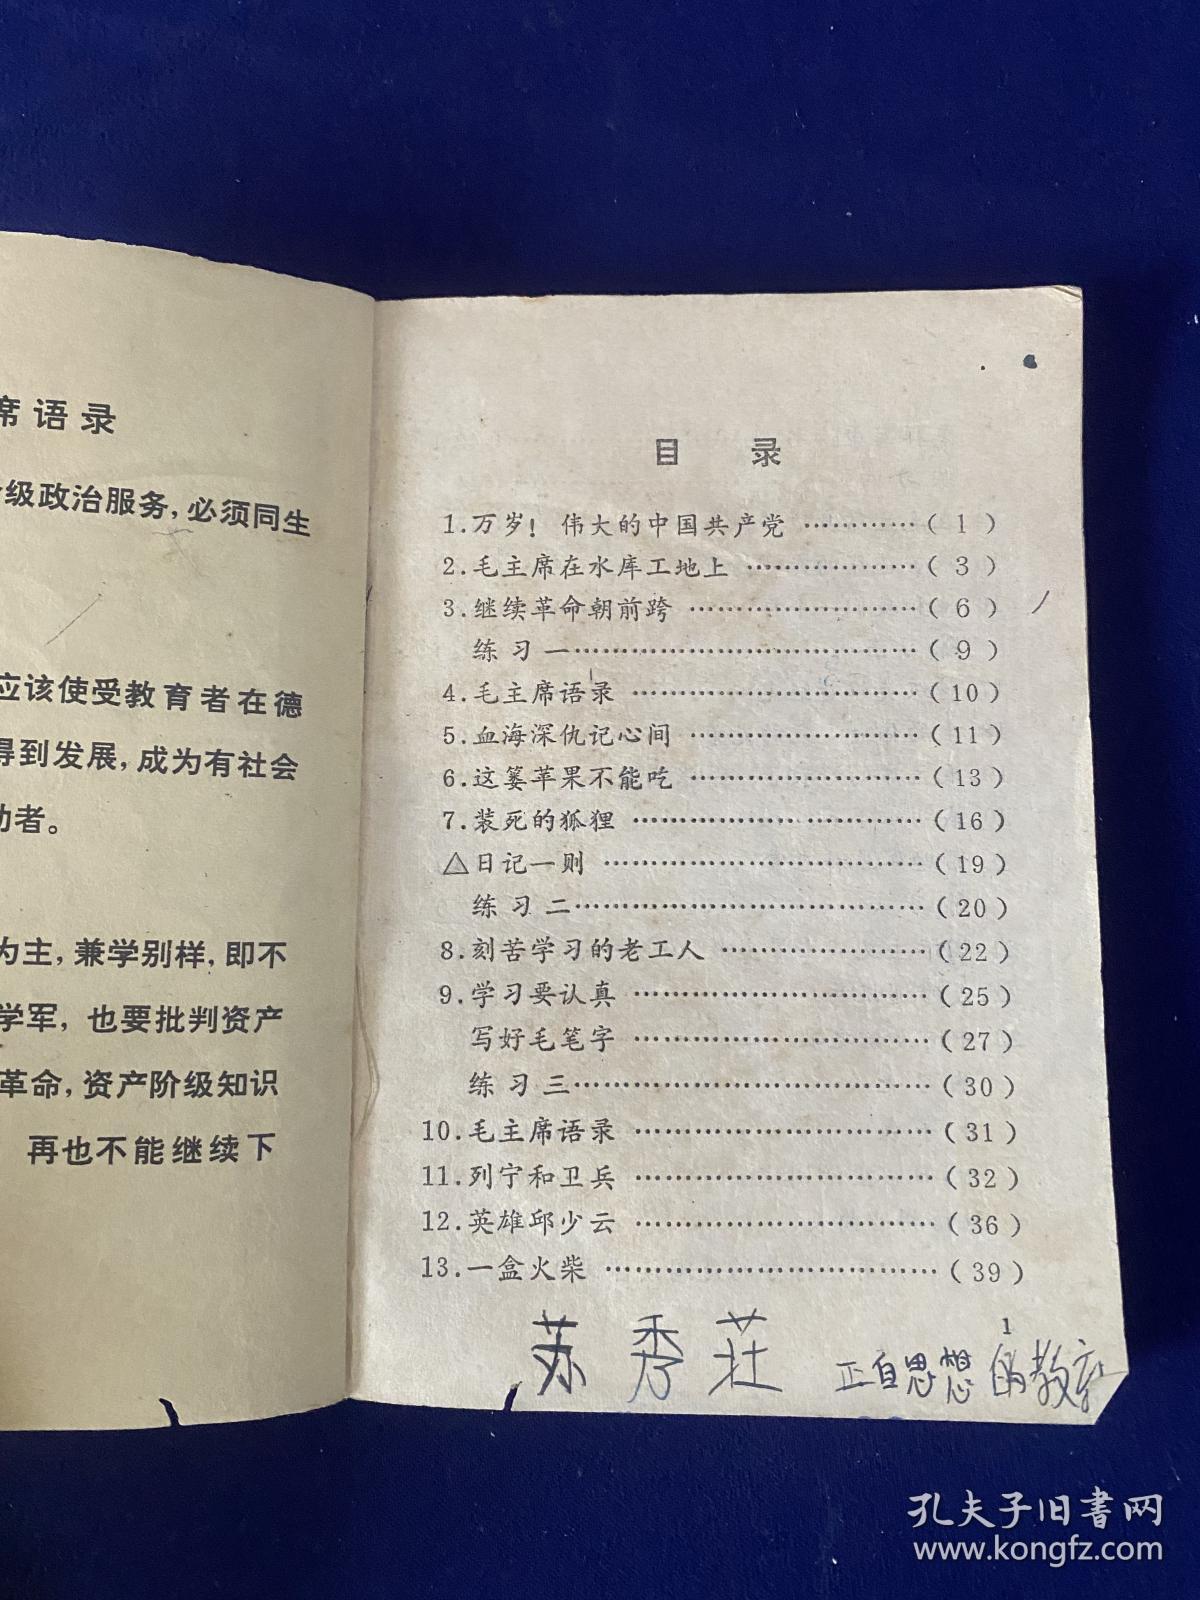 席语录
级政治服务,必须同生
应该使受教育者在德
得到发展,成为有社会
动者。
为主,兼学别样,即不
学军,也要批判资产
革命,资产阶级知识
再也不能继续下
目 录
1.万岁!伟大的中国共产党 …………(1)
2.毛主席在水库工地上 ………………(3)
3.继续革命朝前跨 ……………………(6)
练习一………………………………(9)
4.毛主席语录 …………………………(10)
5.血海深仇记心间 ……………………(11)
6.这篓苹果不能吃 ……………………(13)
7.装死的狐狸 …………………………(16)
△日记一则 ……………………………(19)
练习二………………………………(20)
8.刻苦学习的老工人 …………………(22)
9.学习要认真 …………………………(25)
写好毛笔字 …………………………(27)
练习三………………………………(30)
10.毛主席语录 …………………………(31)
11.列宁和卫兵 …………………………(32)
12.英雄邱少云 …………………………(36)
13.一盒火柴 ……………………………(39)
1
苏秀荘
正自思想的教育
孔夫子旧書网
www.kongfz.com